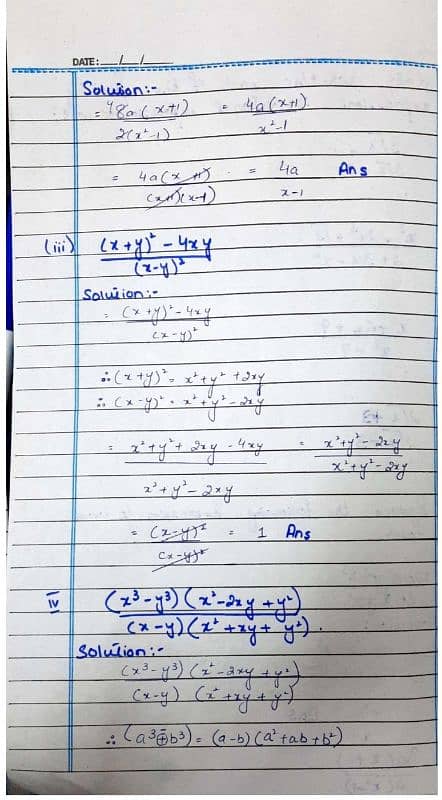 DATE: __/__/__
Solution:-
= ⁴8a(x+1) / 2(x²-1) = 4a(x+1) / x²-1
= 4a(x+1) / (x+1)(x-1) = 4a / x-1 Ans
(iii) (x+y)² - 4xy / (x-y)²
Solution:-
= (x+y)² - 4xy / (x-y)²
∴ (x+y)² = x²+y²+2xy
∴ (x-y)² = x²+y²-2xy
= x²+y²+2xy-4xy / x²+y²-2xy = x²+y²-2xy / x²+y²-2xy
= (x-y)² / (x-y)² = 1 Ans
iv (x³-y³)(x²-2xy+y²) / (x-y)(x²+xy+y²).
Solution:-
(x³-y³)(x²-2xy+y²) / (x-y)(x²+xy+y²)
∴ (a³-b³) = (a-b)(a²+ab+b²)